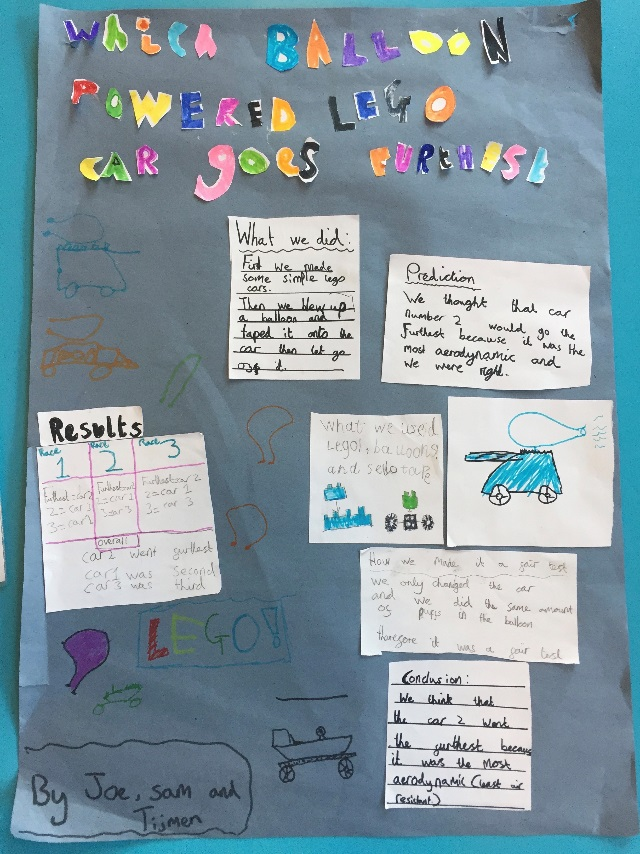 WHICH BALLOON
POWERED LEGO
CAR GOES FURTHIST
What we did:
First we made
some simple lego
cars.
Then we blew up
a balloon and
taped it onto the
car then let go
of it.
Prediction
We thought that car
number 2 would go the
furthest because it was the
most aerodynamic and
we were right.
Results
Race Race Race
1 2 3
Furthest=car2 Furthest=car2 Furthest=car 2
2= car1 2= car1 2= car 1
3= 3=car3 3= car 3
overall
car 2 went furthest
car 1 was second
car 3 was third
What we used
Lego, balloons
and sellotape
How we made it a fair test
we only changed the car
and we did the same amount
of puffs in the balloon
therefore it was a fair test
LEGO!
Conclusion:
We think that
the car 2 went
the furthest becaus
it was the most
aerodynamic (least air
resistant)
By Joe, Sam and
Tijmen